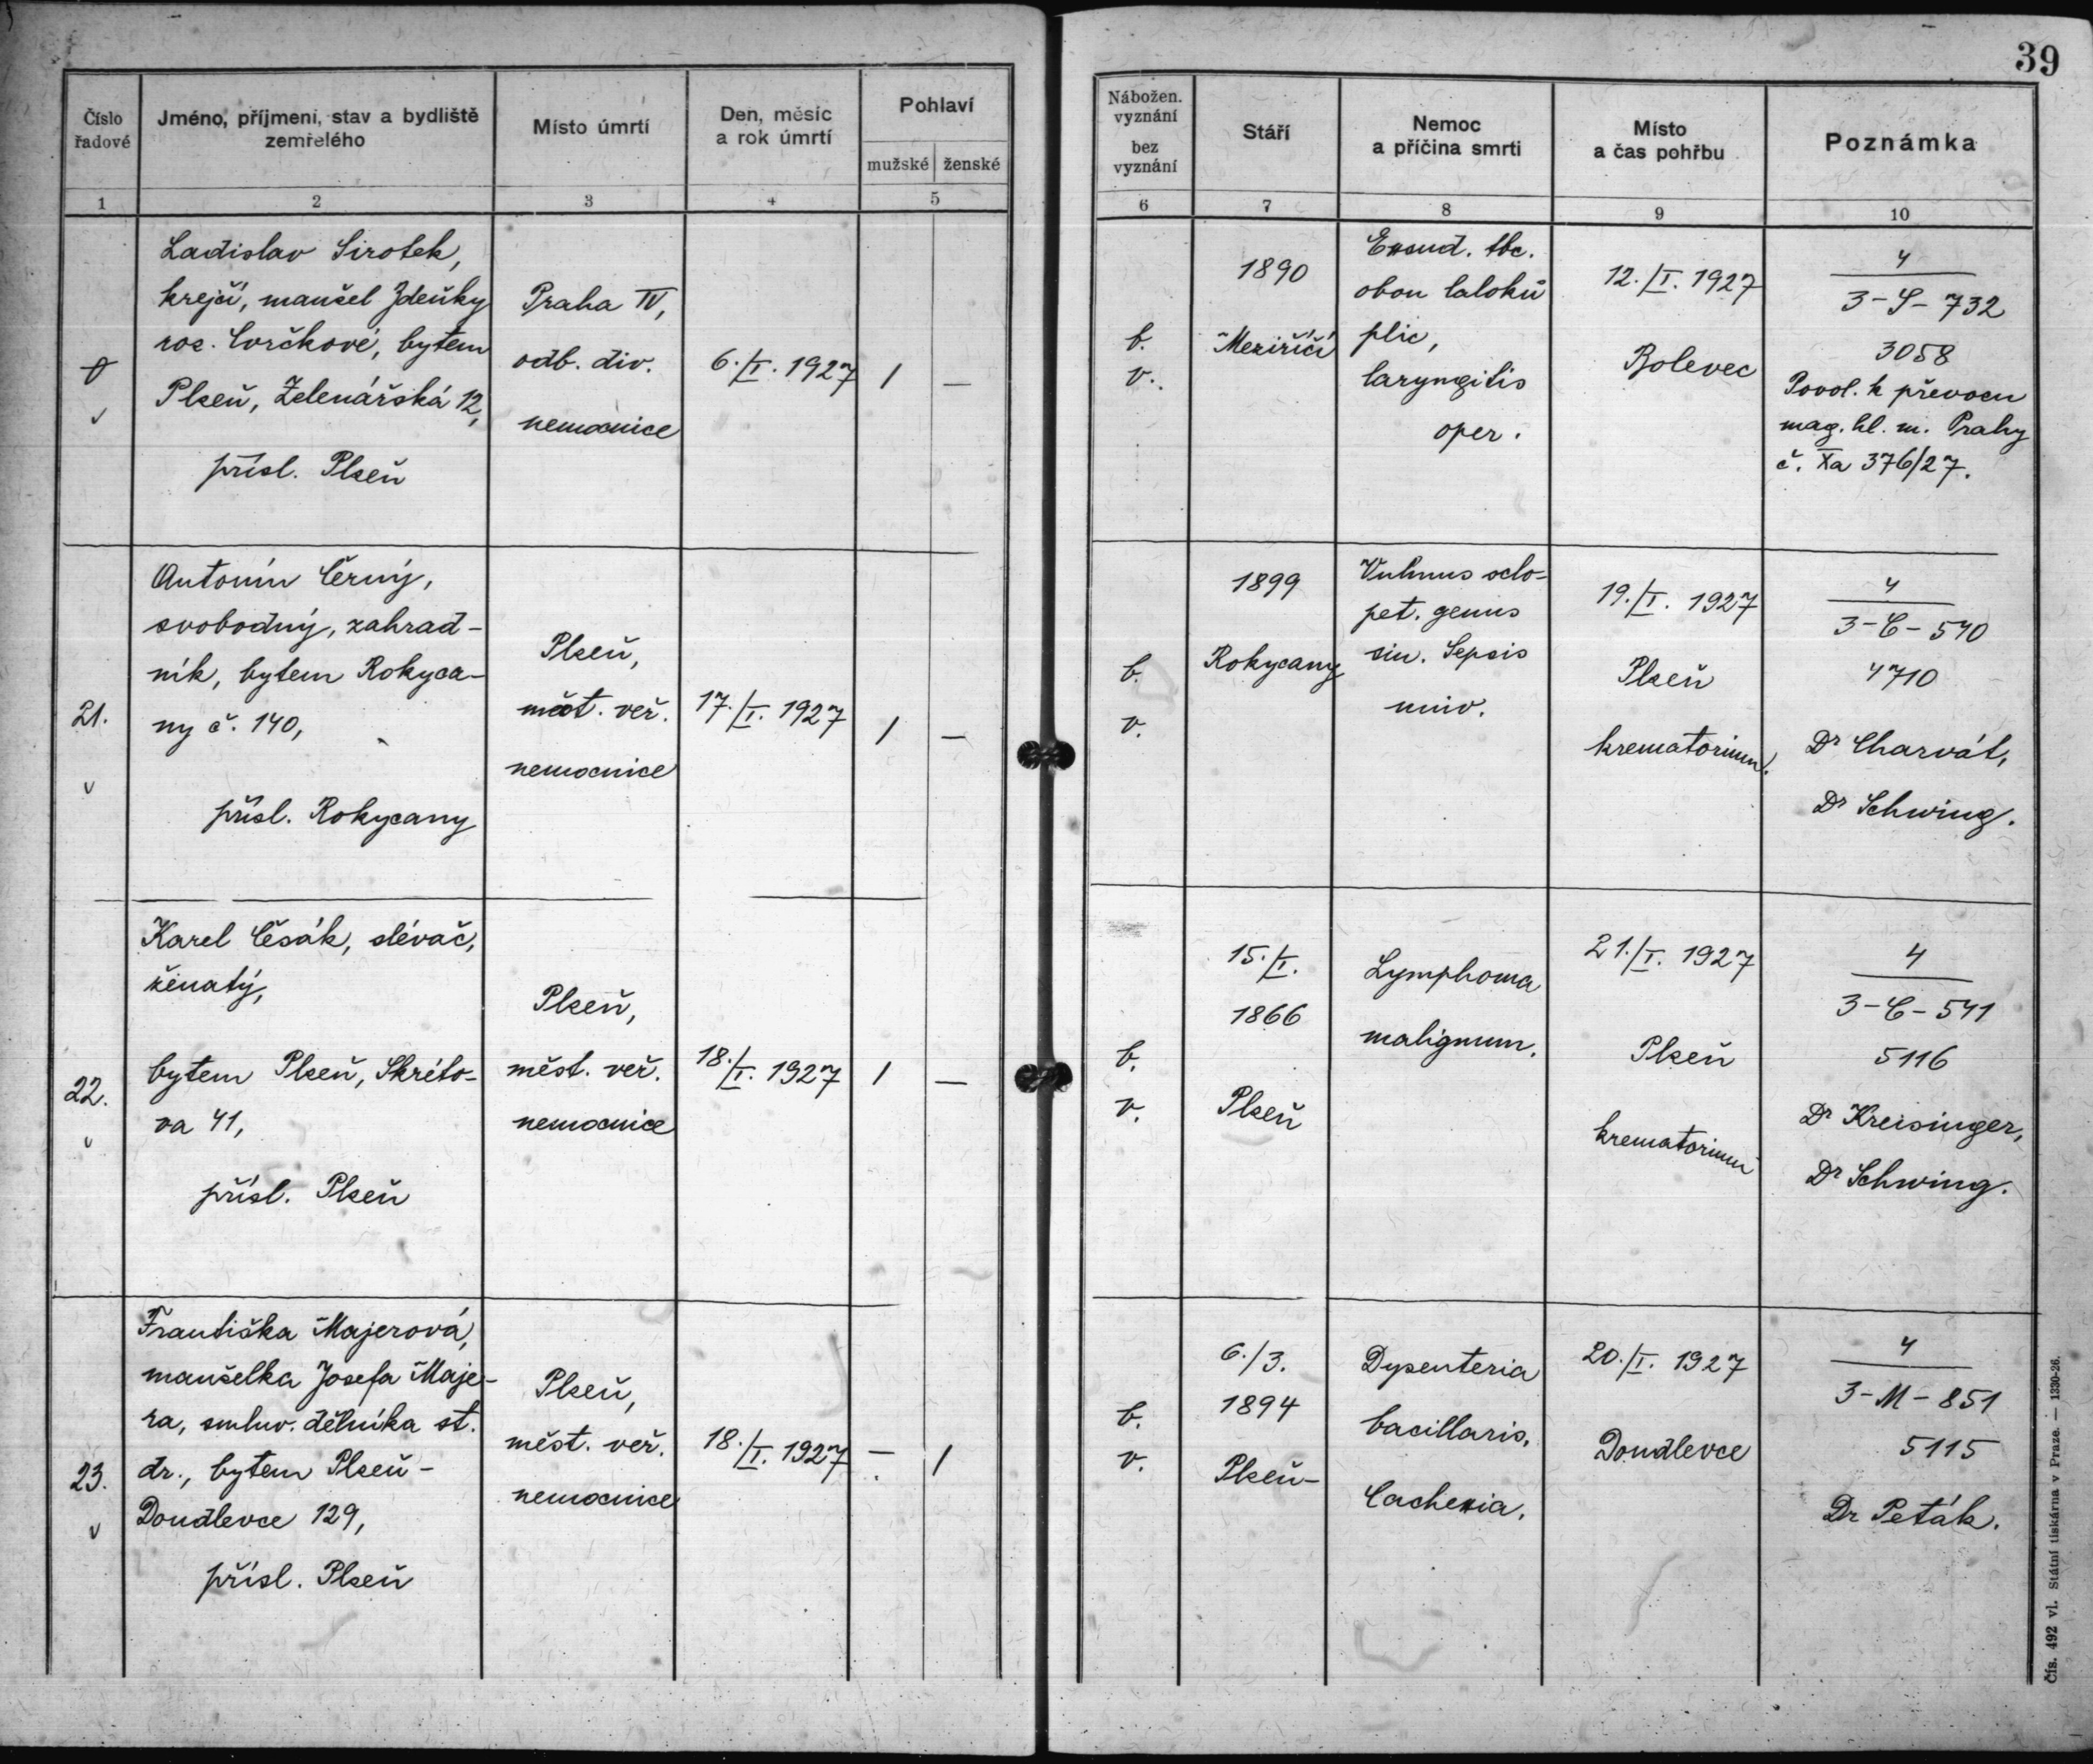 39
Číslo
řadové
Jméno, příjmení, stav a bydliště
zemřelého
Místo úmrtí
Den, měsíc
a rok úmrtí
Pohlaví
mužské ženské
Nábožen.
vyznání
bez
vyznání
Stáří
Nemoc
a příčina smrti
Místo
a čas pohřbu
Poznámka
1 2 3 4 5 6 7 8 9 10
Ladislav Sirotek,
krejčí, manžel Zdeňky
roz. Cvrčkové, bytem
Plzeň, Zelenářská 12,
přísl. Plzeň
Praha IV,
odb. div.
nemocnice
6./I. 1927
1 —
b.
v.
1890
Meziříčí
Exsud. tbc.
obou laloků
plic,
laryngitis
oper.
12./I. 1927
Bolevec
4
3-S-732
3058
Povol. k převozu
mag. hl. m. Prahy
č. Xa 376/27.
21.
v
Antonín Černý,
svobodný, zahrad-
ník, bytem Rokyca-
ny č. 140,
přísl. Rokycany
Plzeň,
měst. veř.
nemocnice
17./I. 1927
1 —
b.
v.
1899
Rokycany
Vulnus sclo-
pet. genus
sin. Sepsis
univ.
19./I. 1927
Plzeň
krematorium.
4
3-C-540
4710
Dr Charvát,
Dr Schwing.
22.
v
Karel Česák, slévač,
ženatý,
bytem Plzeň, Skréto-
va 41,
přísl. Plzeň
Plzeň,
měst. veř.
nemocnice
18./I. 1927
1 —
b.
v.
15./I.
1866
Plzeň
Lymphoma
malignum.
21./I. 1927
Plzeň
krematorium
4
3-C-541
5116
Dr Kreisinger,
Dr Schwing.
23.
v
Františka Majerová,
manželka Josefa Maje-
ra, smluv. dělníka st.
dr., bytem Plzeň-
Doudlevce 129,
přísl. Plzeň
Plzeň,
měst. veř.
nemocnice
18./I. 1927
— 1
b.
v.
6./3.
1894
Plzeň-
Dysenteria
bacillaris.
Cachexia.
20./I. 1927
Doudlevce
4
3-M-851
5115
Dr Peták.
Čís. 492 vl. Státní tiskárna v Praze. — 1330-26.